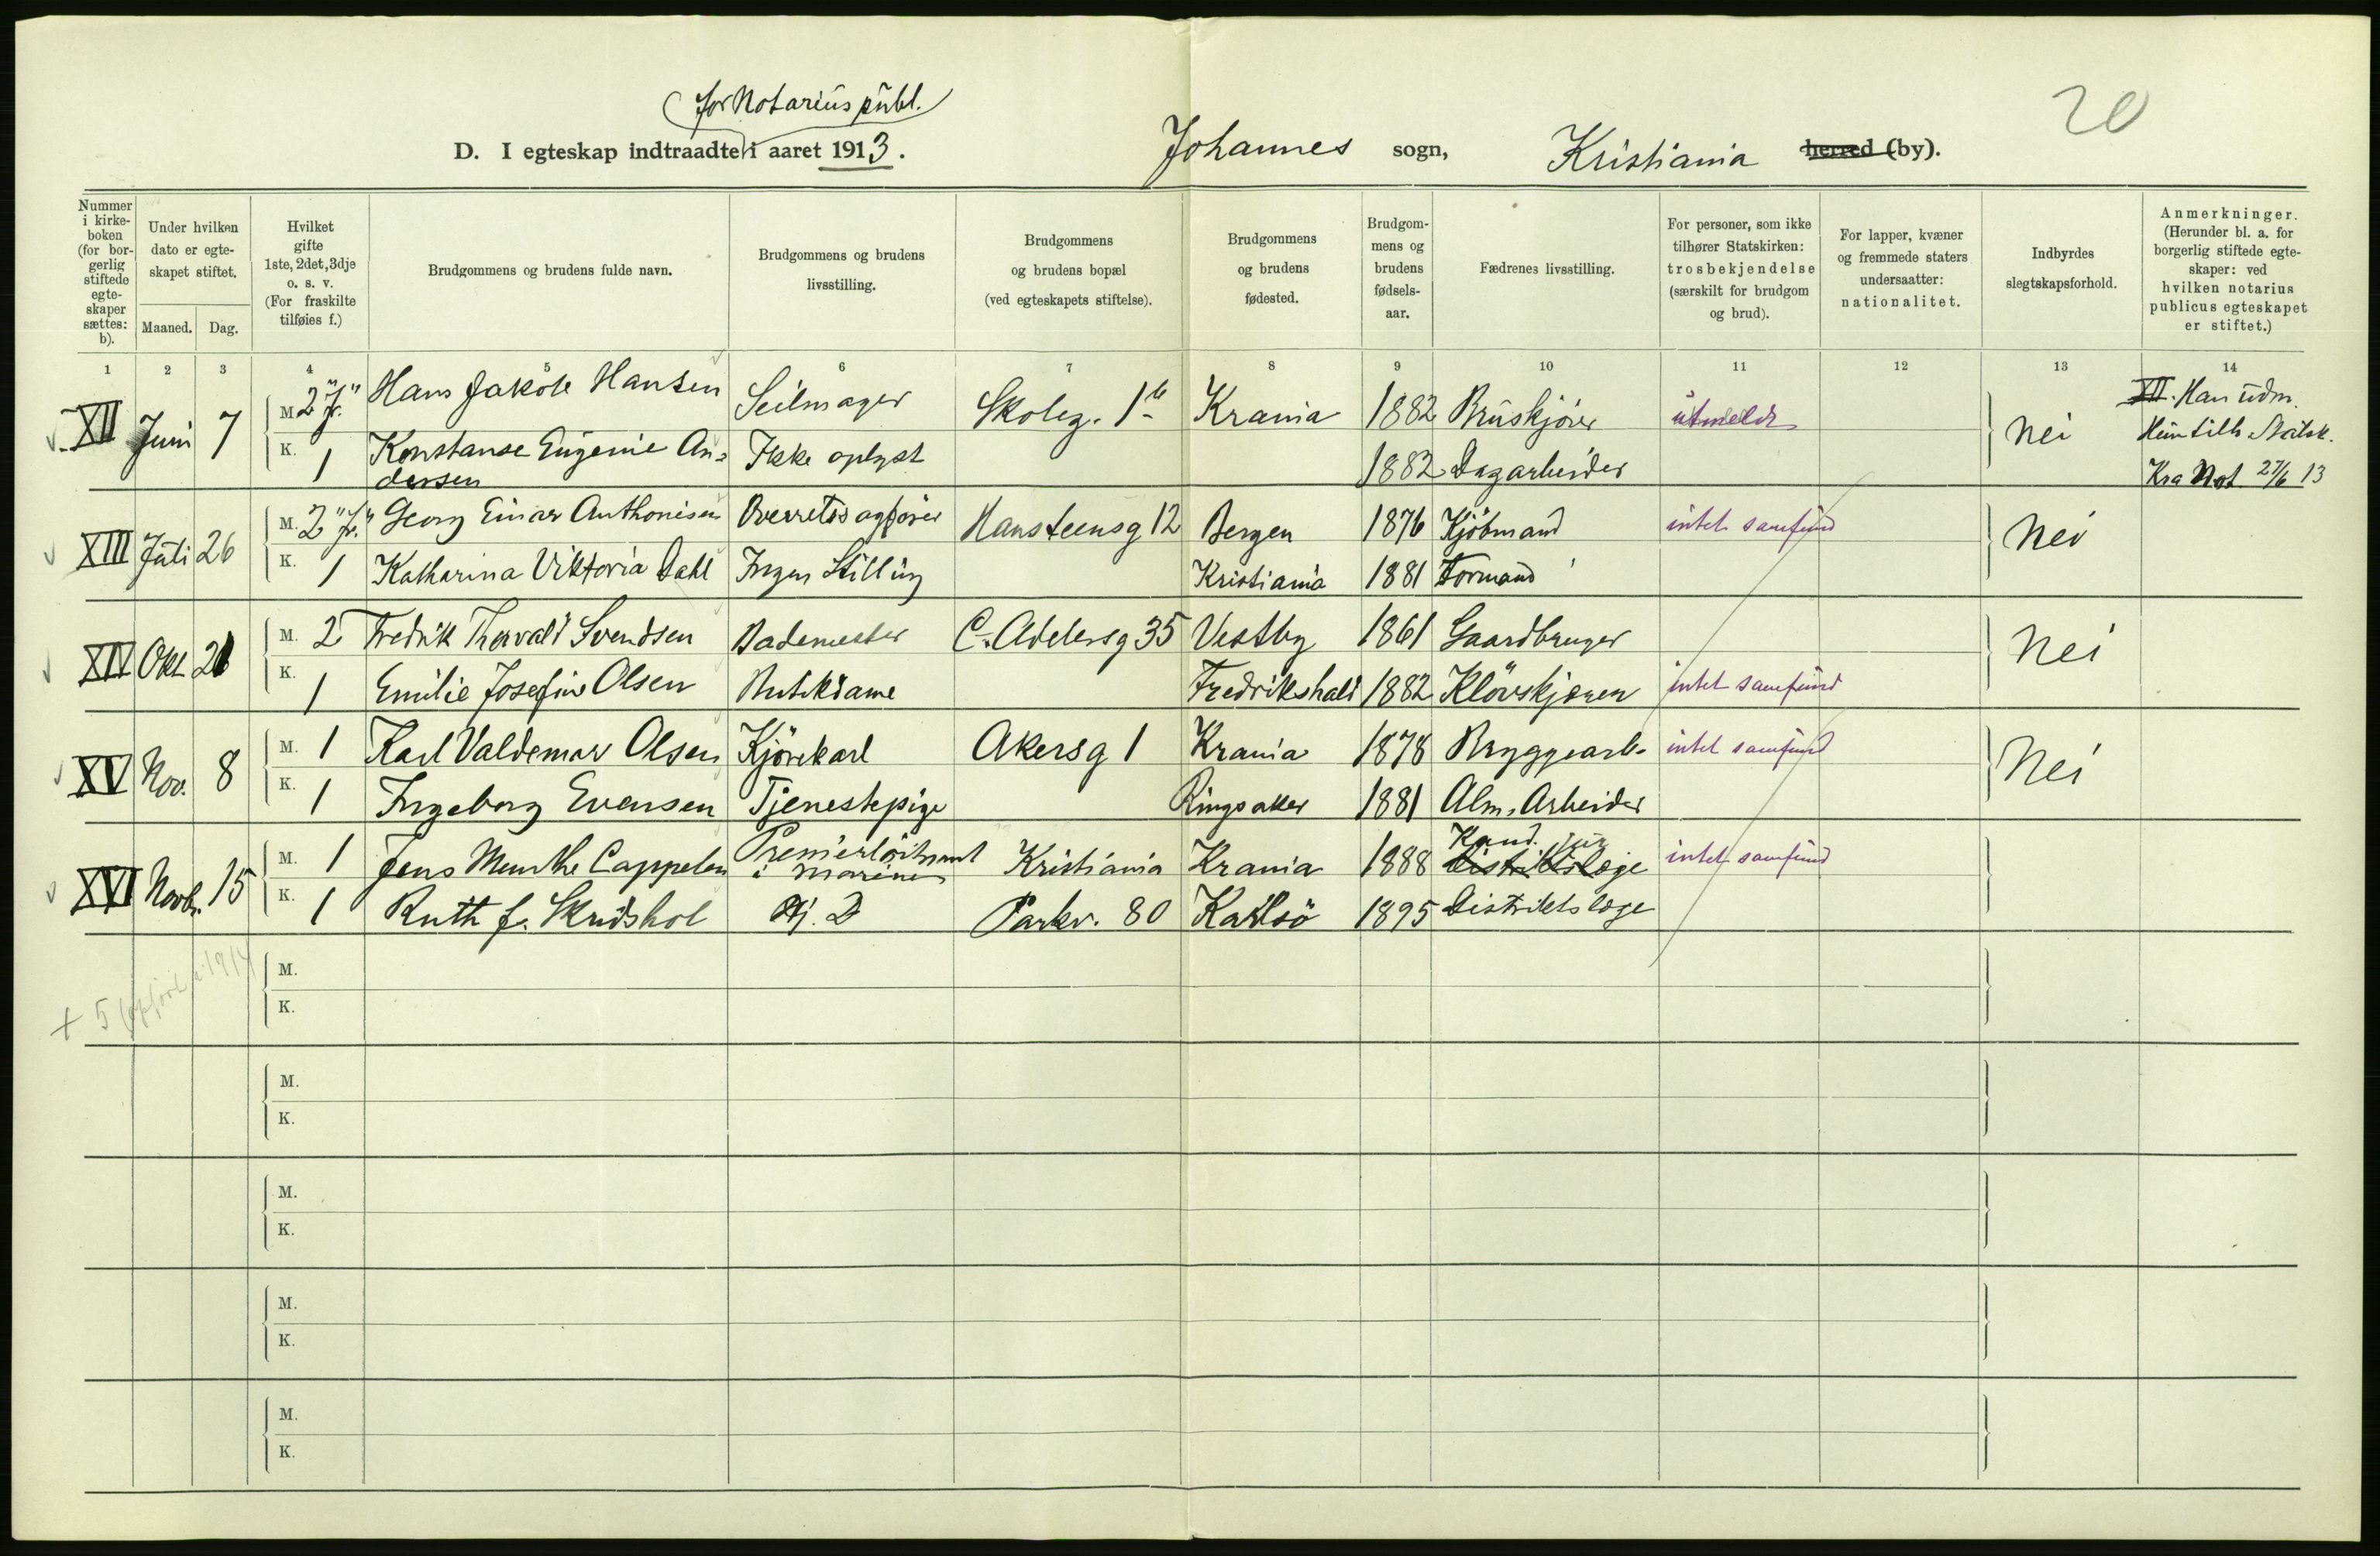 for Notarius publ.
20
D. I egteskap indtraadte i aaret 1913. Johannes sogn, Kristiania herred (by).
Nummer i kirkeboken (for borgerlig stiftede egteskaper sættes: b).
Under hvilken dato er egteskapet stiftet.
Maaned. Dag.
Hvilket gifte 1ste, 2det, 3dje o. s. v. (For fraskilte tilføies f.)
Brudgommens og brudens fulde navn.
Brudgommens og brudens livsstilling.
Brudgommens og brudens bopæl (ved egteskapets stiftelse).
Brudgommens og brudens fødested.
Brudgommens og brudens fødselsaar.
Fædrenes livsstilling.
For personer, som ikke tilhører Statskirken: trosbekjendelse (særskilt for brudgom og brud).
For lapper, kvæner og fremmede staters undersaatter: nationalitet.
Indbyrdes slegtskapsforhold.
Anmerkninger. (Herunder bl. a. for borgerlig stiftede egteskaper: ved hvilken notarius publicus egteskapet er stiftet.)
1 2 3 4 5 6 7 8 9 10 11 12 13 14
XII Juni 7 M. 2 "f." Hans Jakob Hansen Seilmager Skoleg. 1b Krania 1882 Bruskjører utmeldt Nei XII. Han udm.
Hun tilh. Statsk.
K. 1 Konstanse Eugenie Andersen Ikke oplyst 1882 Dagarbeider Kra Not 27/6 13
XIII Juli 26 M. 2 "f." Georg Einar Anthonisen Overretssagfører Hansteensg 12 Bergen 1876 Kjøbmand intet samfund Nei
K. 1 Katharina Viktoria Dahl Ingen Stilling Kristiania 1881 Formand
XIV Okt. 21 M. 2 Fredrik Thorvald Svendsen Bademester C. Adelersg 35 Vestby 1861 Gaardbruger Nei
K. 1 Emilie Josefine Olsen Butikdame Fredrikshald 1882 intet samfund
XV Nov. 8 M. 1 Karl Valdemar Olsen Kjørekarl Akersg 1 Krania 1878 Bryggearb. intet samfund Nei
K. 1 Ingeborg Evensen Tjenestepige Ringsaker 1881 Alm. Arbeider
XVI Novbr. 15 M. 1 Jens Munthe Cappelen Premierløitnant i marinen Kristiania Krania 1888 Kand. jur Distriktslæge intet samfund
K. 1 Ruth f. Skridshol Parkv. 80 Karlsö 1895 Distriktslæge
+ 5 opført i 1914
M.
K.
M.
K.
M.
K.
M.
K.
M.
K.